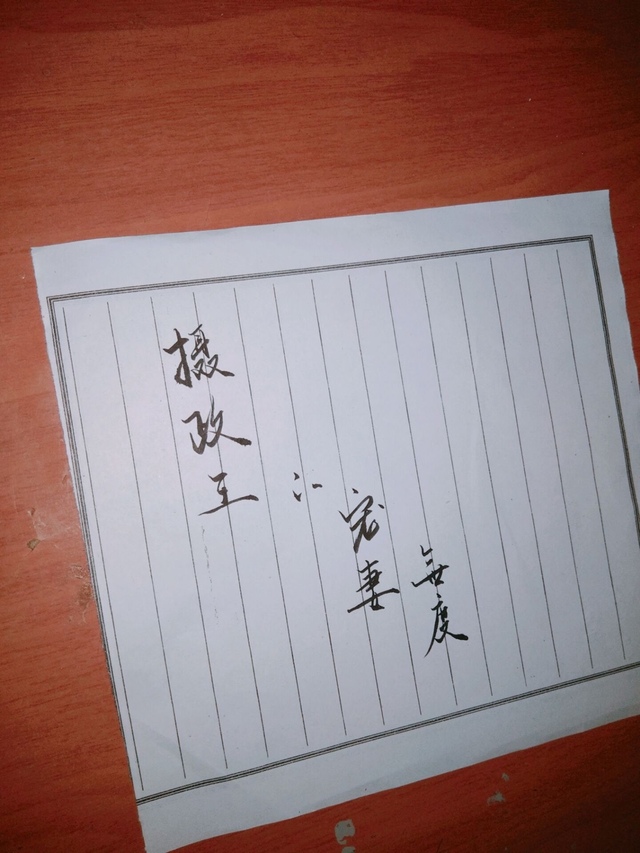 摄政王:
宠妻
无度